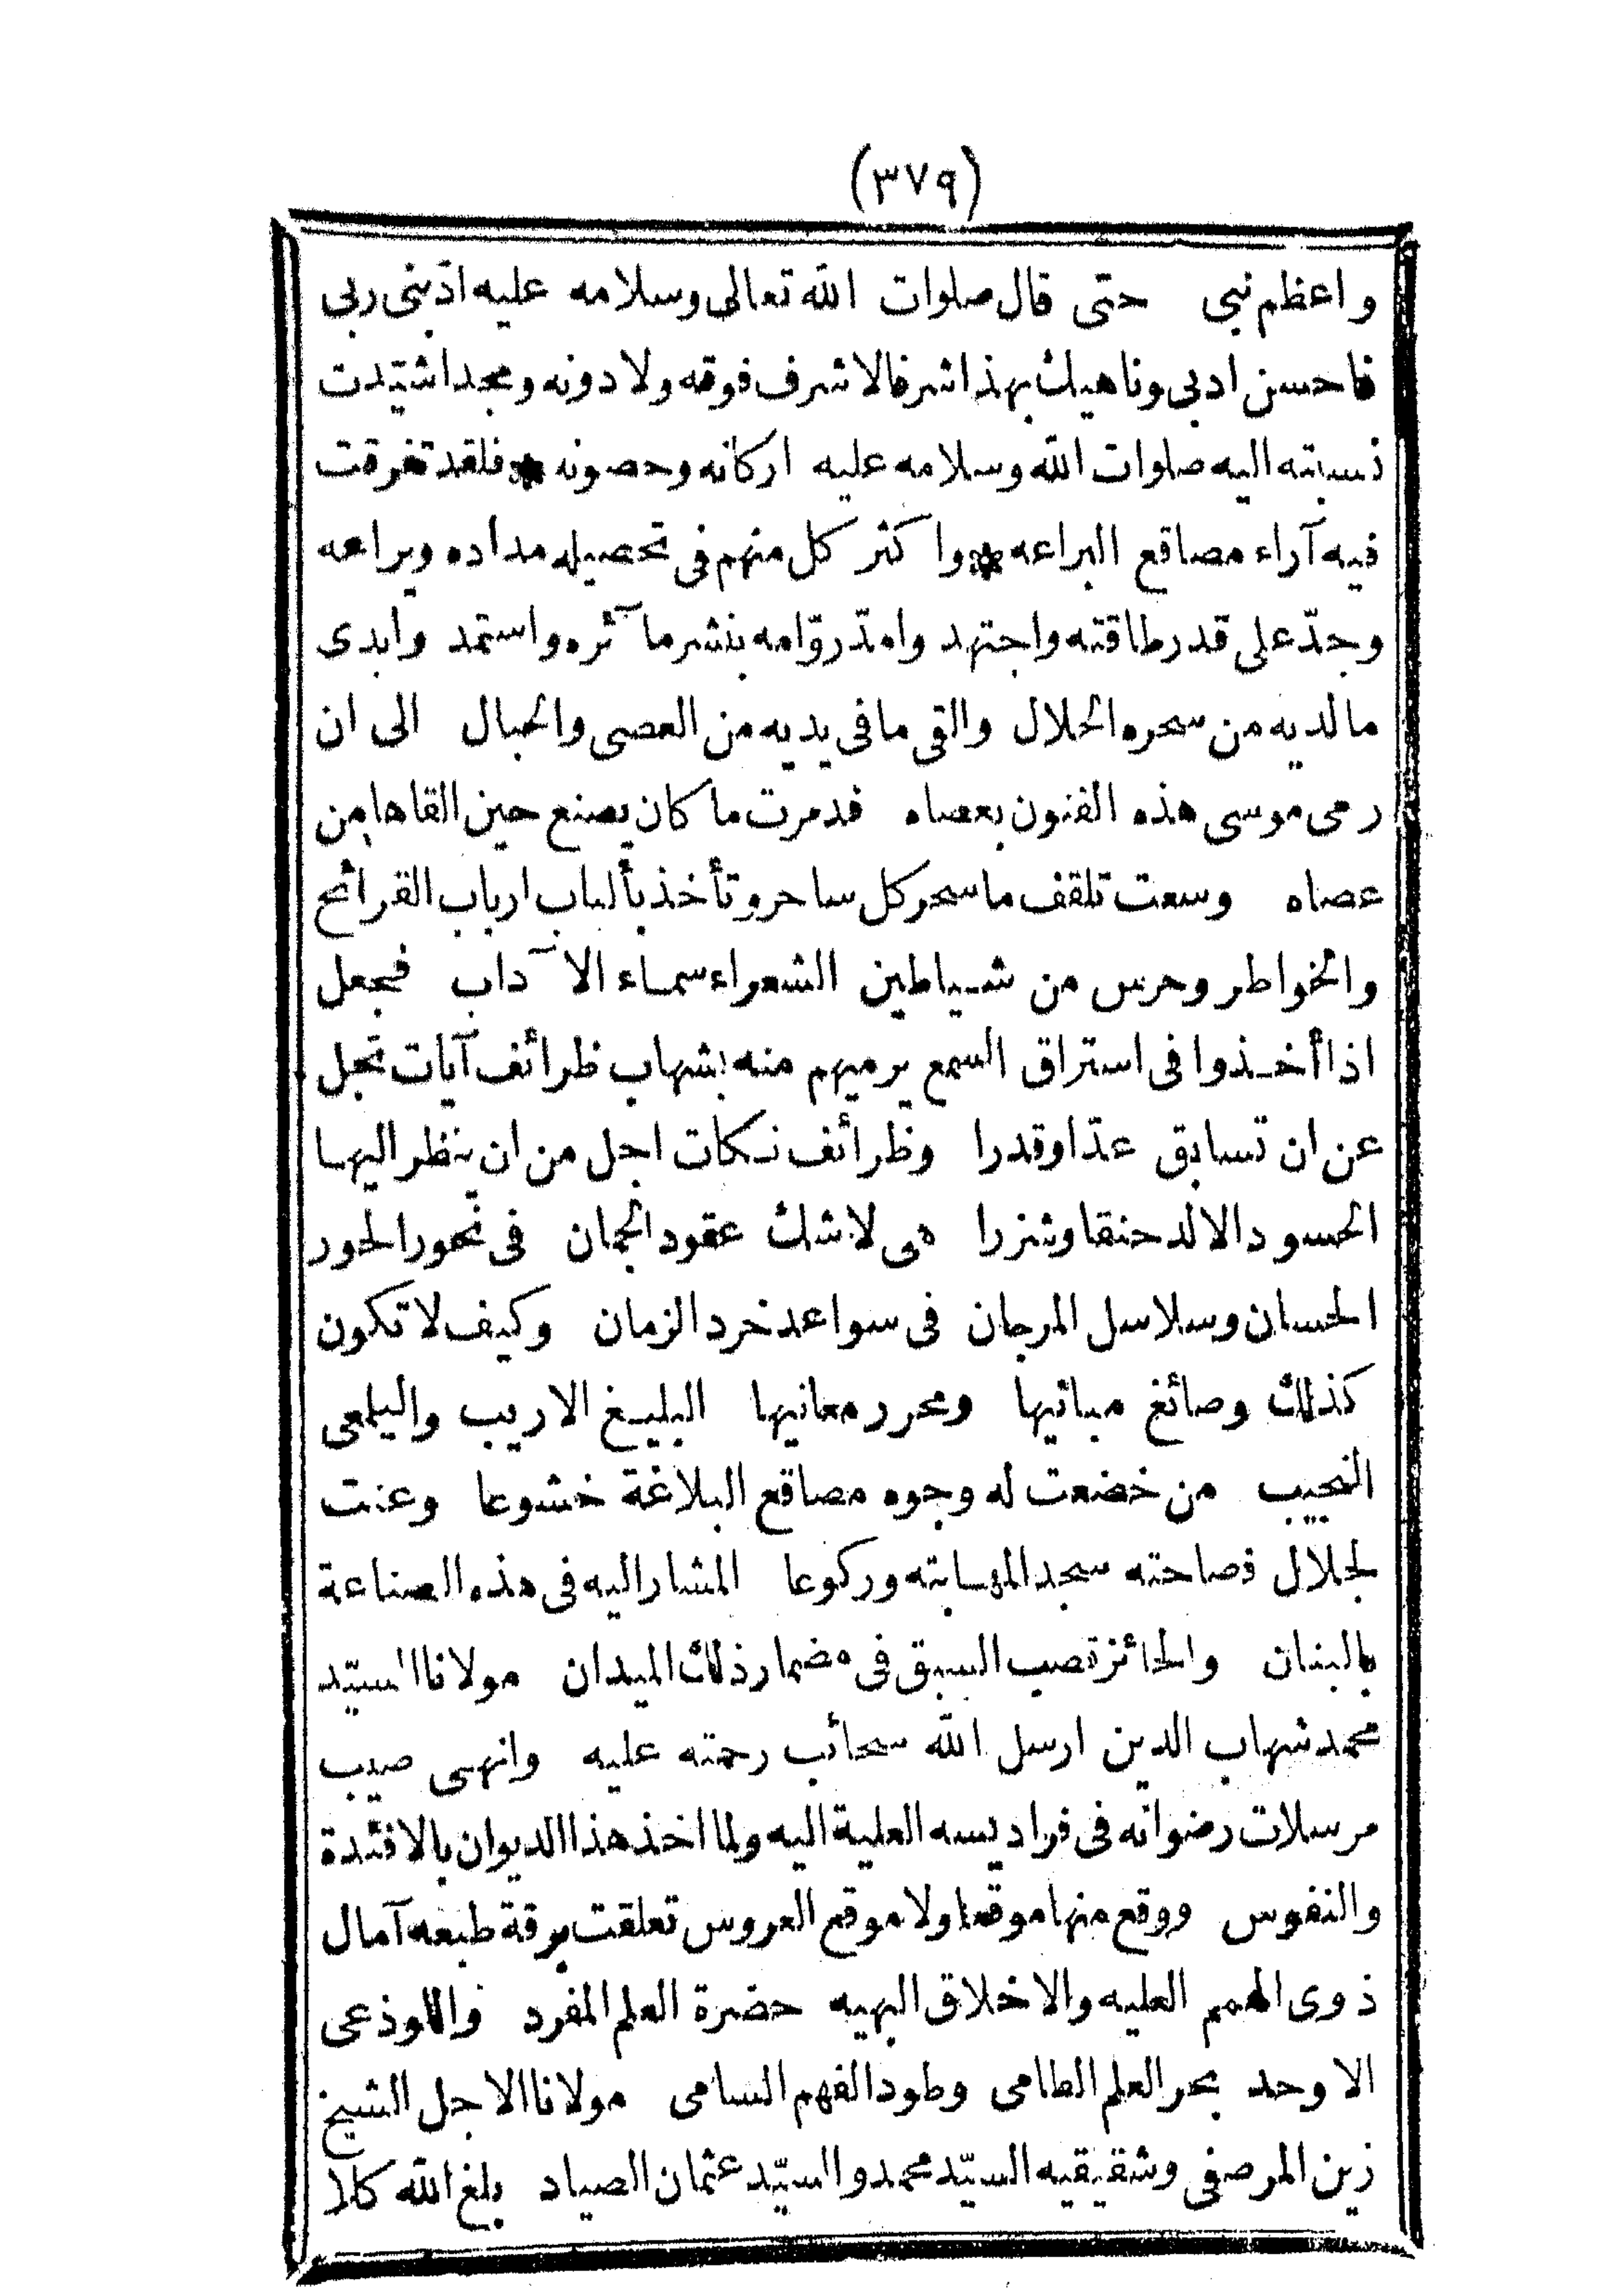 (٣٧٩)
واعظم نبى حتى قال صلوات الله تعالى وسلامه عليه ادّبنى ربى
فاحسن ادبى وناهيك بهذا شرفا لا شرف فوقه ولا دونه ومجدا شيّدت
نسبته اليه صلوات الله وسلامه عليه اركانه وحصونه * فلقد تفرقت
فيه آراء مصاقع البراعه * واكثر كل منهم فى تحصيله مداده ويراعه
وجدّ على قدر طاقته واجتهد وامتدّ روّامه بنشر مآثره واستمد وابدى
مالديه من سحره الحلال والقى ما فى يديه من العصى والحبال الى ان
رمى موسى هذه الفنون بعصاه فدمرت ما كان يصنع حين القاها من
عصاه وسعت تلقف ما سحر كل ساحر وتأخذ بألباب ارباب القرائح
والخواطر وحرس من شياطين الشعراء سماء الآداب فجعل
اذا أخذوا فى استراق السمع يرميهم منه بشهاب ظرائف آيات تجل
عن ان تسابق عدّا وقدرا وظرائف نكات اجل من ان ينظر اليها
الحسود الالد حنقا وشزرا هى لاشك عقود الجمان فى نحور الحور
الحسان وسلاسل المرجان فى سواعد خرد الزمان وكيف لا تكون
كذلك وصائغ مبانيها ومحرر معانيها البليغ الاريب واليلمعى
النجيب من خضعت له وجوه مصاقع البلاغة خشوعا وعنت
لجلال فصاحته سجدا لمهابته وركوعا المشار اليه فى هذه الصناعة
بالبنان والحائز قصب السبق فى مضمار ذلك الميدان مولانا السيّد
محمد شهاب الدين ارسل الله سحائب رحمته عليه وانهى صيب
مرسلات رضوانه فى فراديسه العلية اليه ولما اخذ هذا الديوان بالافئدة
والنفوس ووقع منها موقعا ولا موقع العروس تعلقت برقة طبعه آمال
ذوى الهمم العليه والاخلاق البهيه حضرة العلم المفرد واللوذعى
الاوحد بحر العلم الطامى وطود الفهم السامى مولانا الاجل الشيخ
زين المرصفى وشقيقيه السيّد محمد والسيّد عثمان الصياد بلغ الله كلا